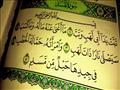 بِسْمِ اللَّهِ الرَّحْمَٰنِ الرَّحِيمِ
تَبَّتْ يَدَا أَبِي لَهَبٍ وَتَبَّ مَا أَغْنَىٰ عَنْهُ مَالُهُ وَمَا
كَسَبَ سَيَصْلَىٰ نَارًا ذَاتَ لَهَبٍ وَامْرَأَتُهُ حَمَّالَةَ الْحَطَبِ
فِي جِيدِهَا حَبْلٌ مِّن مَّسَدٍ